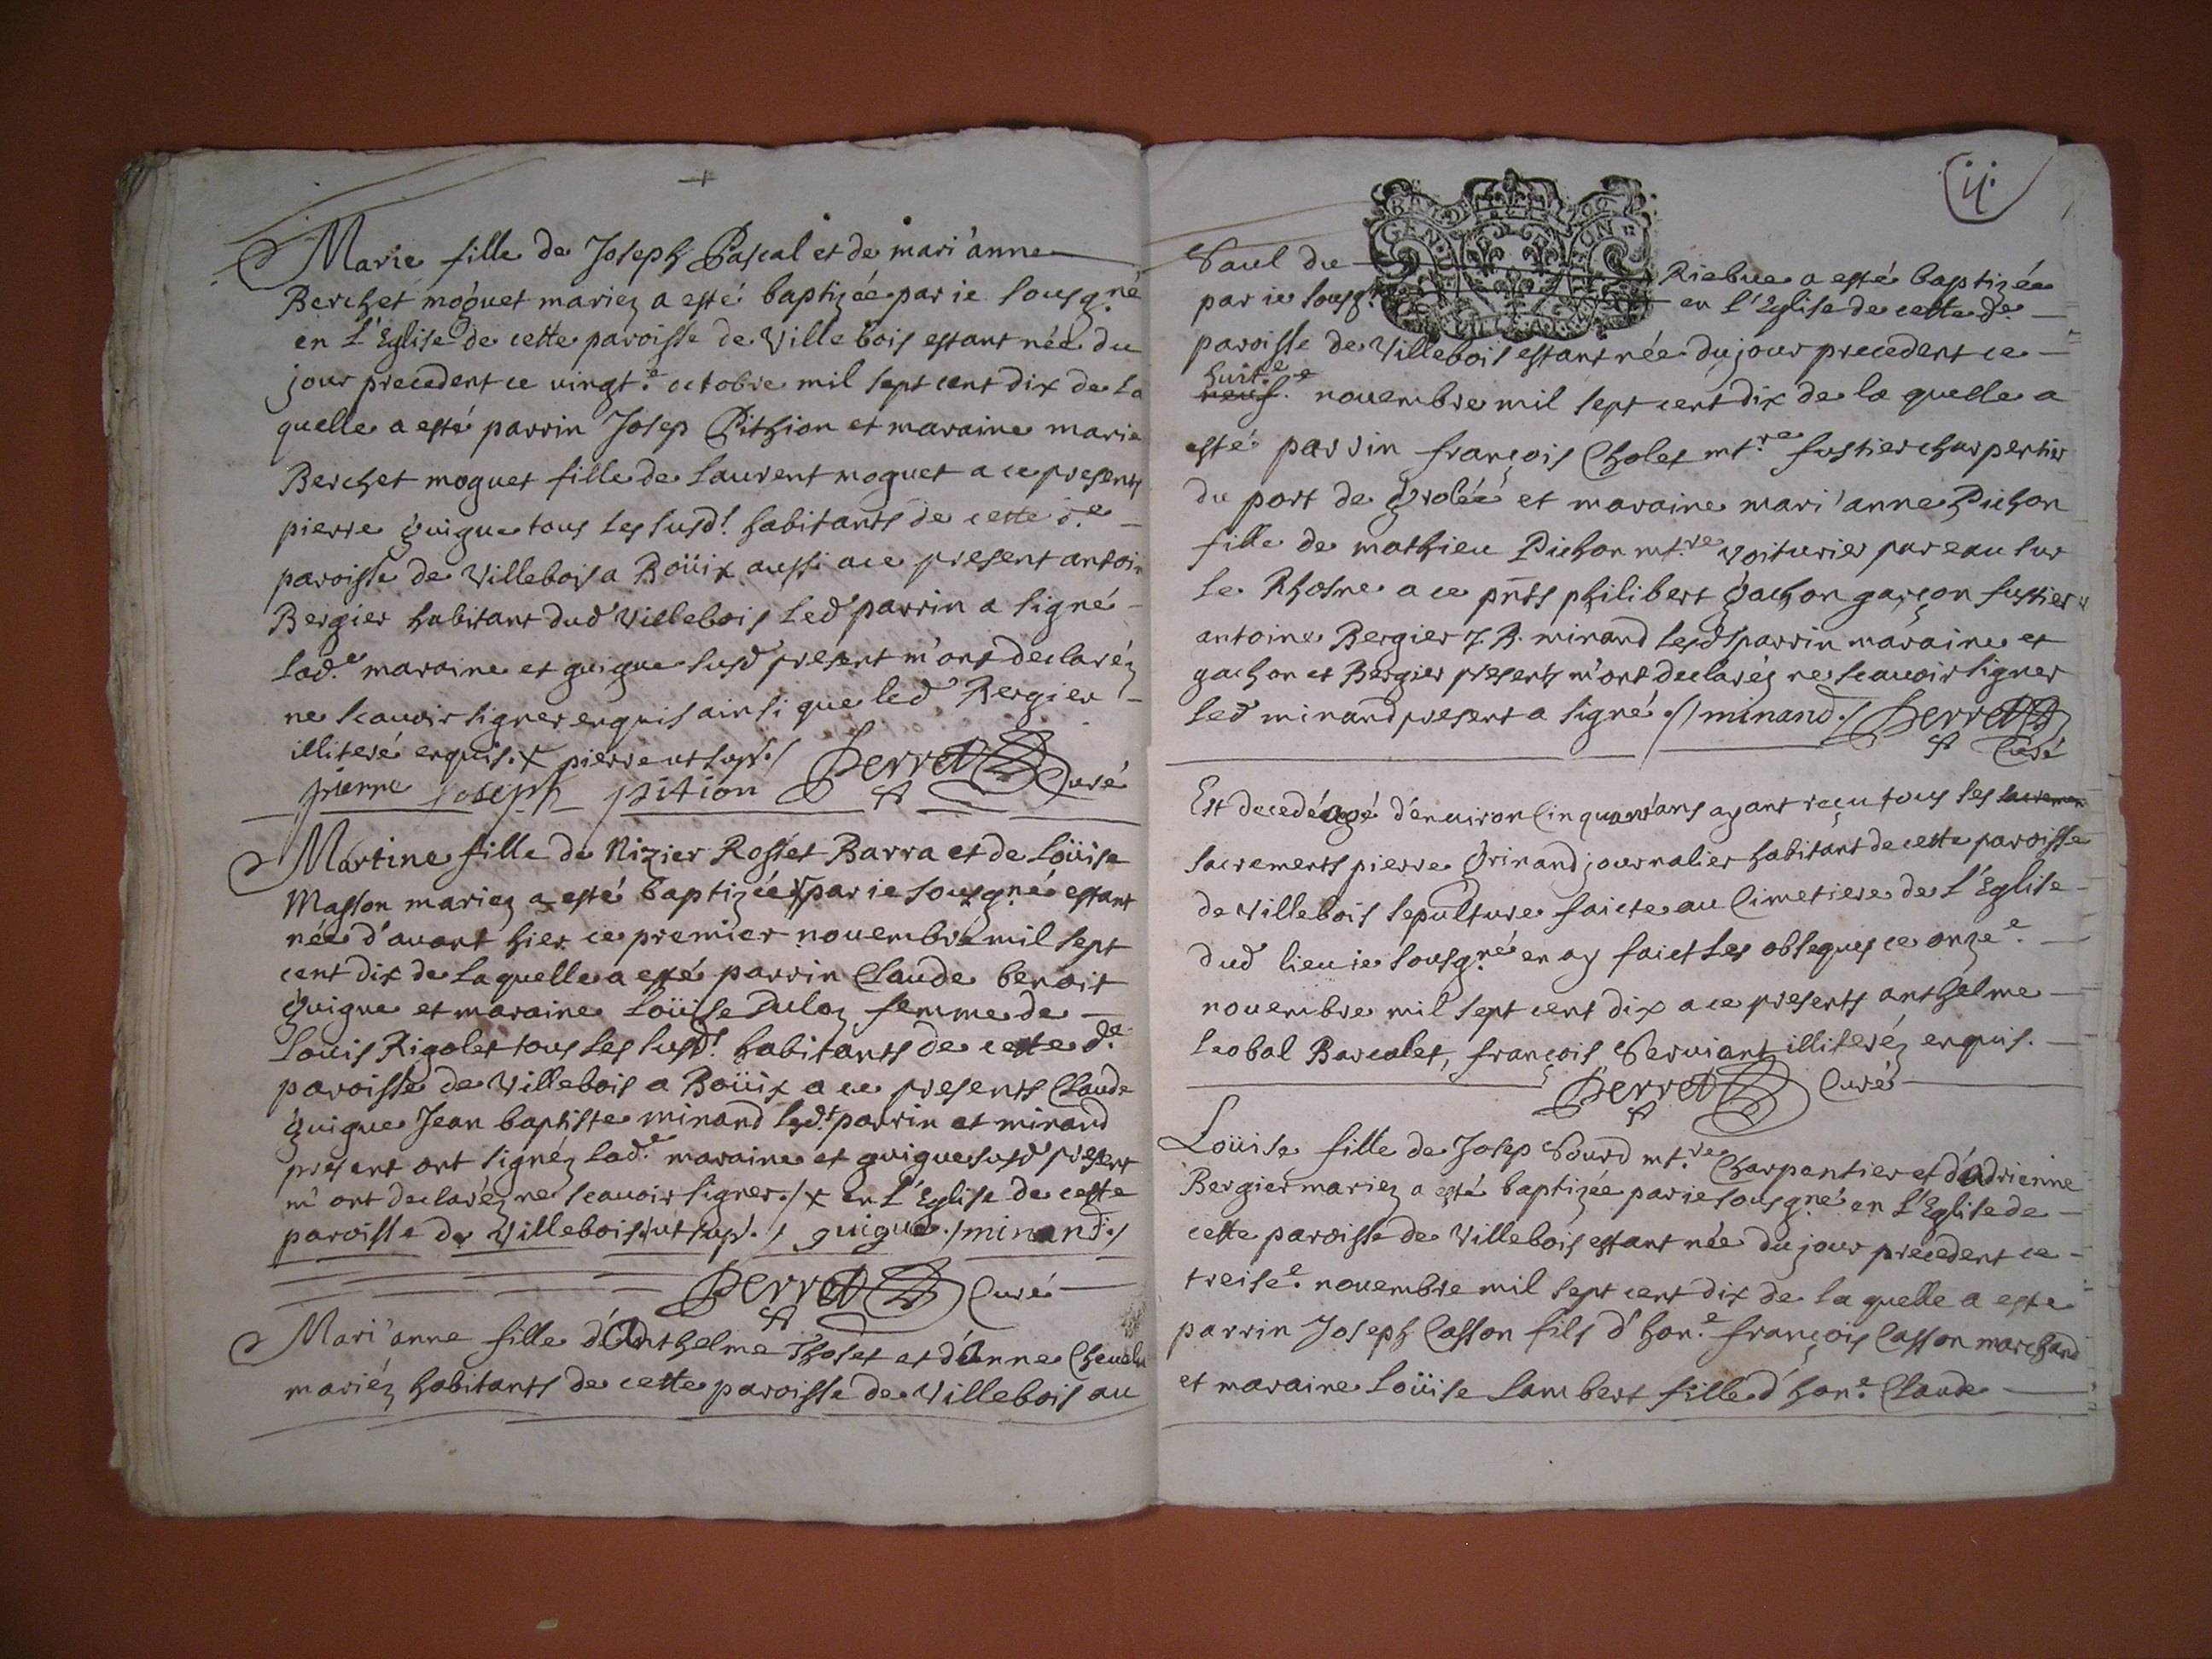 Marie fille de Joseph Pascal et de mari'anne
Berchet moguet mariez a esté baptizée par ie sousg.né
en L'Eglise de cette paroisse de Villebois estant née du
jour precedent ce vingt.e octobre mil sept cent dix de La
quelle a esté parrin Josep Pithion et maraine marie
Berchet moguet fille de Laurent moguet a ce presents
pierre guigue tous Les susd.t habitants de cette d.e
paroisse de Villebois a Boüix aussi a ce present antoin
Bergier habitant dud Villebois Led parrin a signé
Lad.e maraine et guigue susd present m'ont declaréz
ne scauoir signer enquis ainsi que led Bergier
illiteré enquis. x pierre ut sup./
pierre joseph pition Perret Curé
Martine fille de Nizier Rosset Barra et de Loüise
Masson mariez a esté baptizée x par ie sousg.né estant
née d'auant hier ce premier nouembre mil sept
cent dix de Laquelle a esté parrin Claude benoit
guigue et maraine Loüise Duloz femme de
Louis Rigolet tous Les susd.t habitants de cette d.e
paroisse de Villebois a Boüix a ce presents Claude
guigue Jean baptiste minand Lesd.t parrin et minand
present ont signéz Lad.e maraine et guigue susd present
m'ont declaréz ne scauoir signer./ x en L'Eglise de cette
paroisse de Villebois ut sup./ guigue./ minand./
Perret Curé
Mari'anne fille d'Anthelme Tholet et d'anne
mariéz habitants de cette paroisse de Villebois au
ij.
Saul du Riebue a esté baptizée
par ie sousg. en L'Eglise de cette d.e
paroisse de Villebois estant née du jour precedent ce
huit.e
neuf.e nouembre mil sept cent dix de la quelle a
esté parrin françois Cholet mt.re fustier charpentier
du port de grolée et maraine mari'anne Pichon
fille de mathieu Pichon mt.re voiturier par eau sur
Le Rhosne a ce pnts philibert gachon garçon fustier
antoine Bergier J.B. minand Lesd parrin maraine et
gachon et Bergier presents m'ont declaréz ne scauoir signer
Led minand present a signé./ minand./ Perret
Curé
Est decedé agé d'enuiron Cinquant'ans ayant reçu tous Les sacremen
sacrements pierre Grinand journalier habitant de cette paroisse
de Villebois sepulture faicte au Cimetiere de L'Eglise
dud lieu ie sousg.né en ay faict Les obseques ce onze.e
nouembre mil sept cent dix a ce presents anthelme
Leobal Barcalet, françois Seruiant illiteréz enquis.
Perret Curé
Loüise fille de Josep Sourd mt.re Charpantier et d'adrienne
Bergier mariez a esté baptizée par ie sousg.né en L'Eglise de
cette paroisse de Villebois estant née du jour precedent ce
treise.e nouembre mil sept cent dix de La quelle a esté
parrin Joseph Casson fils d'hon.e françois Casson marchand
et maraine Loüise Lambert fille d'hon.e Claude